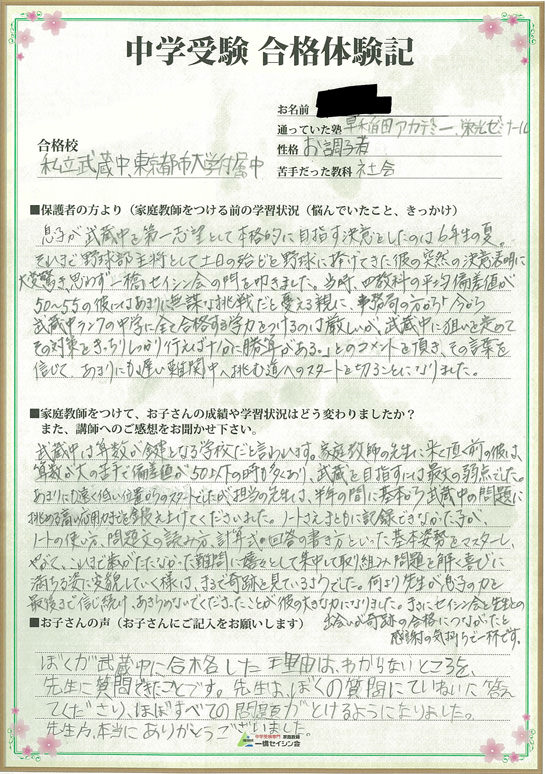 中学受験 合格体験記
お名前
通っていた塾 早稲田アカデミー、栄光ゼミナール
合格校
性格 お調子者
私立武蔵中、東京都市大学付属中
苦手だった教科 社会
■保護者の方より（家庭教師をつける前の学習状況（悩んでいたこと、きっかけ）
息子が武蔵中を第一志望として本格的に目指す決意をしたのは6年生の夏。
それまで野球部主将として土日の殆どを野球に捧げてきた彼の突然の決意表明に
大変驚き、思わず一橋セイシン会の門を叩きました。当時、四教科の平均偏差値が
50〜55の彼にはあまりに無謀な挑戦だと憂える親に、事務局の方から「今から
武蔵中ランクの中学に全て合格する学力をつけるのは厳しいが、武蔵中に狙いを定めて
その対策をきっちりしっかり行えば十分に勝算がある。」とのコメントを頂き、その言葉を
信じて、あまりにも遅い難関中へ挑む道へのスタートを切ることになりました。
■家庭教師をつけて、お子さんの成績や学習状況はどう変わりましたか？
また、講師へのご感想をお聞かせ下さい。
武蔵中は算数が鍵となる学校だと言われます。家庭教師の先生に来て頂く前の彼は、
算数が大の苦手で偏差値が50以下の時も多くあり、武蔵を目指すには最大の弱点でした。
あまりにも遠く低い位置からのスタートでしたが、担当の先生は、半年の間に基本から武蔵中の問題に
挑める高い応用力までを鍛え上げてくださいました。ノートさえまともに記録できなかった子が、
ノートの使い方、問題文の読み方、計算式や回答の書き方といった基本姿勢をマスターし、
やがて、これまで歯がたたなかった難問に嬉々として集中して取り組み、問題を解く喜びに
満ちる姿に変貌していく様は、まるで奇跡を見ているようでした。何より先生が息子の力を
最後まで信じ続け、あきらめないでくださったことが彼の大きな力になりました。まさにセイシン会と先生との
出会いが奇跡の合格につながったと
感謝の気持ちで一杯です。
■お子さんの声（お子さんにご記入をお願いします）
ぼくが武蔵中に合格した理由は、わからないところを、
先生に質問できたことです。先生は、ぼくの質問にていねいに答え
てくださり、ほぼすべての問題がとけるようになりました。
先生方、本当にありがとうございました。
中学受験専門 家庭教師
一橋セイシン会